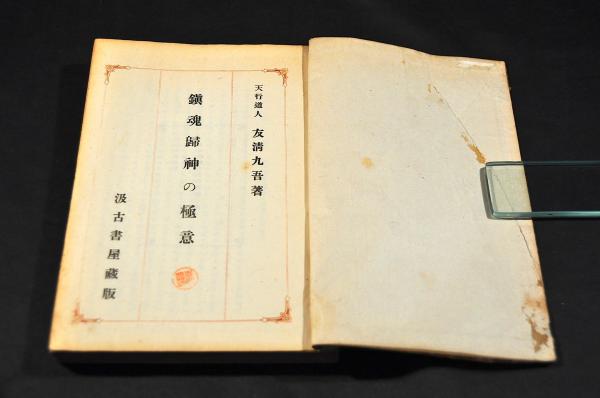 天行道人 友清九吾著
鎭魂歸神の極意
汲古書屋蔵版